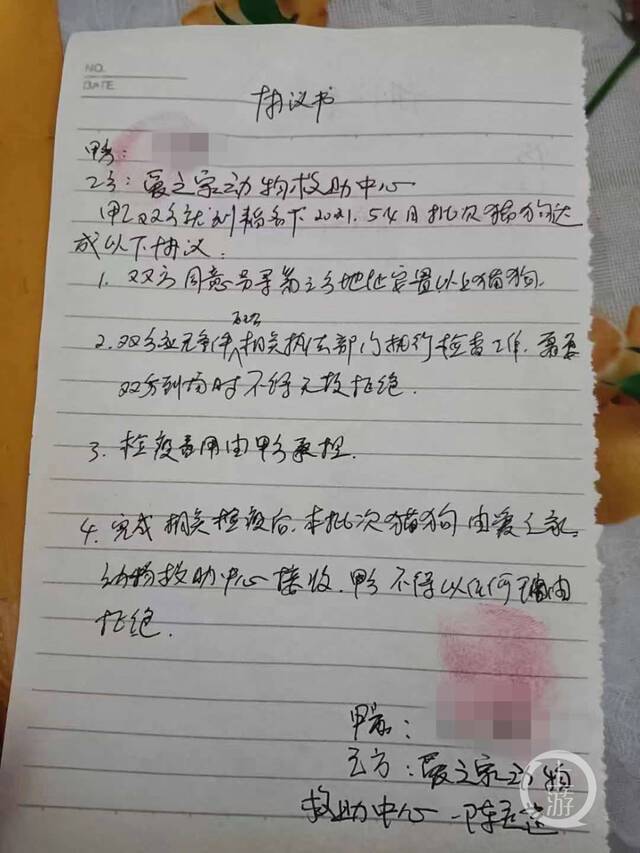 NO.
DATE
协议书
甲方:
乙方:爱之家动物救助中心
甲乙双方就 2021.5.4日批次猫狗达
成以下协议:
1. 双方同意 地址安置以上猫狗.
配合
2. 双方应无条件相关执法部门执行检查工作.需要
双方到场时不得无故拒绝.
3. 检疫费用由甲方承担.
4. 完成相关检疫后.本批次猫狗由爱之家
动物救助中心接收.甲方不得以任何理由
拒绝.
甲方:
乙方:爱之家动物
救助中心 陈
游